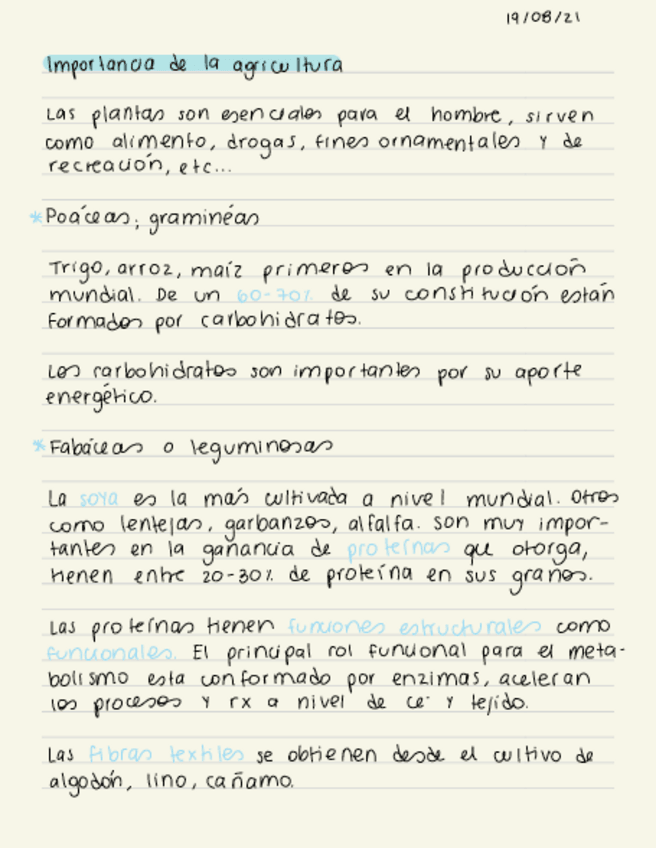 19/08/21
Importancia de la agricultura
Las plantas son esenciales para el hombre, sirven
como alimento, drogas, fines ornamentales y de
recreación, etc...
*Poáceas; graminéas
Trigo, arroz, maíz primeros en la producción
mundial. De un 60-70% de su constitución están
formados por carbohidratos.
Los carbohidratos son importantes por su aporte
energético.
*Fabáceas o leguminosas
La soya es la más cultivada a nivel mundial. Otros
como lentejas, garbanzos, alfalfa. son muy impor-
tantes en la ganancia de proteínas que otorga,
tienen entre 20-30% de proteína en sus granos.
Las proteínas tienen funciones estructurales como
funcionales. El principal rol funcional para el meta-
bolismo esta conformado por enzimas, aceleran
los procesos y rx a nivel de ce· y tejido.
Las fibras textiles se obtienen desde el cultivo de
algodón, lino, cañamo.